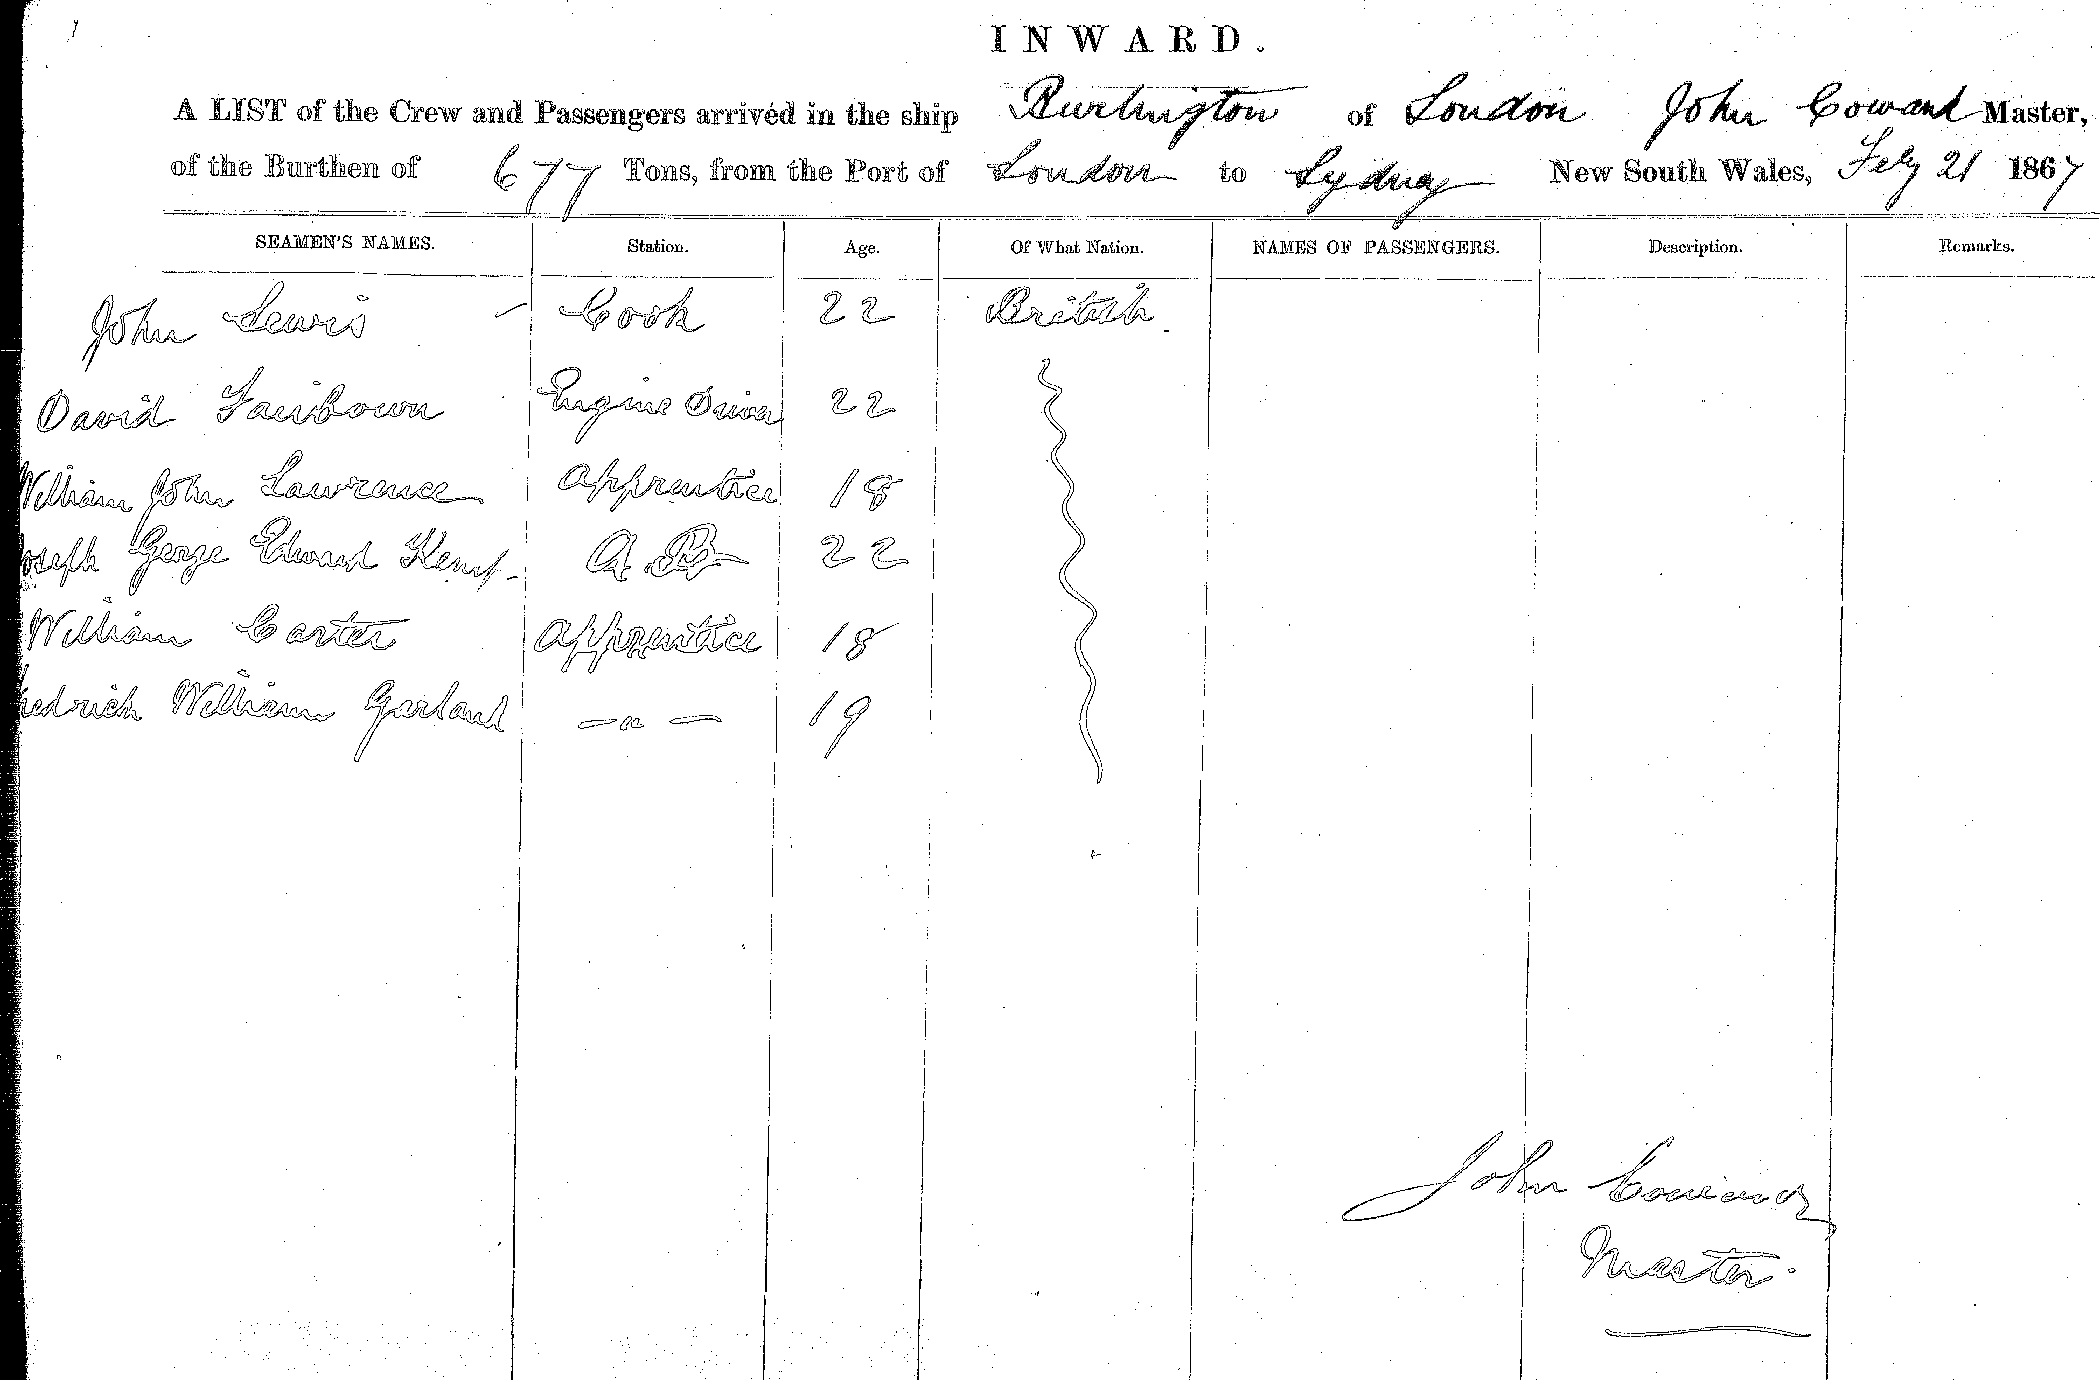 INWARD.
A LIST of the Crew and Passengers arrived in the ship Burlington of London John Coward Master,
of the Burthen of 677 Tons, from the Port of London to Sydney New South Wales, Feby 21 1867
SEAMEN'S NAMES. Station. Age. Of What Nation. NAMES OF PASSENGERS. Description. Remarks.
John Lewis Cook 22 British
David Engine Driver 22
William John Lawrence Apprentice 18
oseph George Edward Kemp A.B 22
William Carter Apprentice 18
redrich William Garland — " — 19
John Coward
Master.